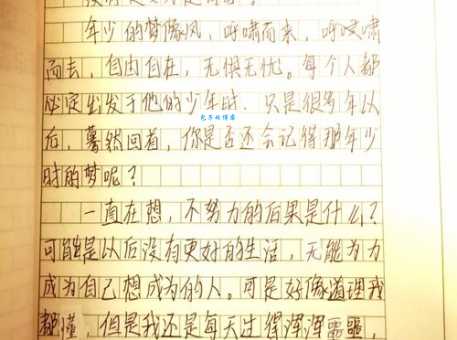 年少的梦像风，呼啸而来，呼啸
而去，自由自在，无惧无忧。每个人都
必定出发于他的少年时，只是很多年以
后，蓦然回首，你是否还会记得那年少
时的梦呢？
一直在想，不努力的后果是什么？
可能是以后没有更好的生活，无能为力
成为自己想成为的人。可是好像道理我
都懂，但是我还是每天过得浑浑噩噩，